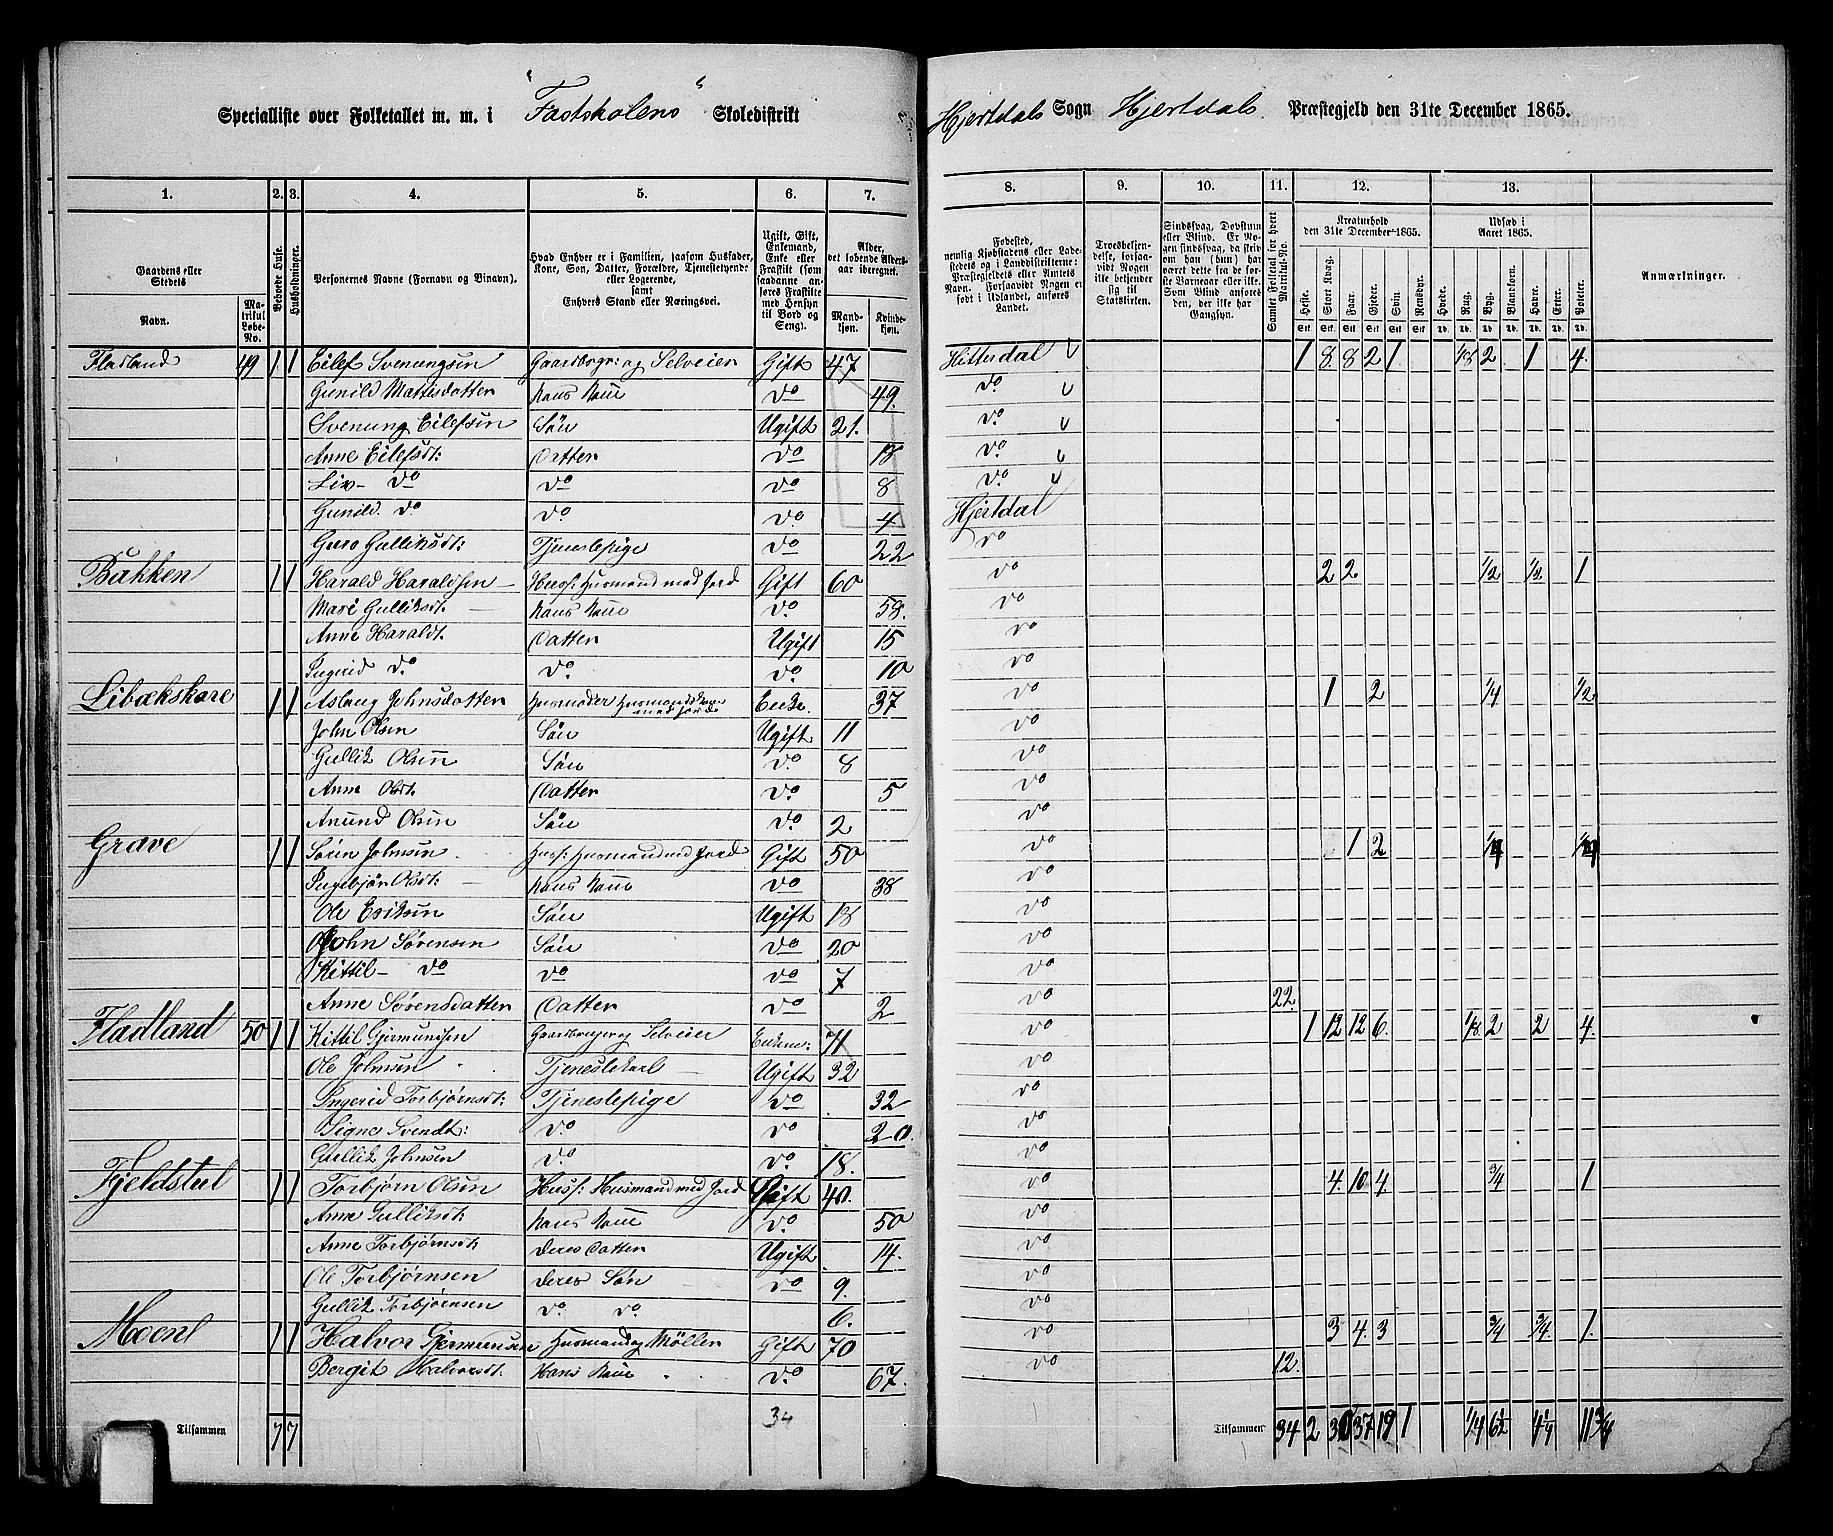 Specialliste over Folketallet m. m. i "Fastskolens" Skoledistrikt Hjertdals Sogn Hjertdals Præstegjeld den 31te December 1865.
1. 2. 3. 4. 5. 6. 7. 8. 9. 10. 11. 12. 13.
Gaardens eller Stedets Navn. Matrikul Løbe-No. Beboede Huse. Husholdninger. Personernes Navne (Fornavn og Binavn). Hvad Enhver er i Familien, saasom Husfader, Kone, Søn, Datter, Forældre, Tjenestetyende eller Logerende, samt Enhvers Stand eller Næringsvei. Ugift, Gift, Enkemand, Enke eller Fraskilt (som saadanne anføres Fraskilte med Hensyn til Bord og Seng). Alder, det løbende Aldersaar iberegnet. Mandkjøn. Kvindekjøn.
Fødested, nemlig Kjøbstadens eller Ladestedets og i Landdistrikterne: Præstegjeldets eller Amtets Navn. Forsaavidt Nogen er født i Udlandet, anføres Landet. Troesbekjendelse, forsaavidt Nogen ikke bekjender sig til Statskirken. Sindssvag, Døvstum eller Blind. Er Nogen sindssvag, da skriv om han (hun) har været dette fra de første Barneaar eller ikke. Som Blind anføres den, der ikke har Gangsyn. Samlet Folketal for hvert Matrikul-No. Kreaturhold den 31te December 1865. Udsæd i Aaret 1865. Anmærkninger.
Heste. Stort Kvæg. Faar. Gjeder. Svin. Rensdyr. Hvede. Rug. Byg. Blandkorn. Havre. Erter. Poteter.
Fladland 49 1 1 Eilef Svenungsen Gaardbrgr: og Selveier Gift 47 Hitterdal 1 8. 8 2 1 1/8 2 1 4.
Gunild Mattisdatter Hans Kone Do 49. Do
Svenung Eilefsen Søn Ugift 21. Do
Anne Eilefsdt: Datter Do 18 Do
Liv- Do Do Do 8 Do
Gunild. Do Do Do 4 Hjertdal
Guro Gulliksdt: Tjenestepige Do 22 Do
Bakken 1 1 Harald Haraldsen Husf: Husmand med Jord Gift 60 Do 2 2 1/2 1/2 1
Mari Gulliksdt. Hans Kone Do 58. Do
Anne Haraldt. Datter Ugift 15 Do
Ingerid Do Do Do 10 Do
Libækskare 1 1 Aslaug Johnsdatter Husmoder Husmandskone med Jord Enke. 37 Do 1 2 1/4 1/2
John Olsen Søn Ugift 11 Do
Gullik Olsen Søn Do 8 Do
Anne Olsdt. Datter Do 5 Do
Amund Olsen Søn Do 2 Do
Grave 1 1 Søren Johnsen Husf: Husmand med Jord Gift 50 Do 1 2 1/4 1/4
Ingebjør Olsdt: Hans Kone Do 38 Do
Ole Eriksen Søn Ugift 18 Do
John Sørensen Søn Do 20 Do
Kittil- Do Do Do 7 Do
Anne Sørensdatter Datter Do 2 Do 22.
Fladland 50 1 1 Kittil Gjermundsen Gaardbruger og Selveier Enkem: 71 Do 1 12 12 6. 1/8. 2 2 4.
Ole Johnsen Tjenestekarl Ugift 32 Do
Ingerid Torbjørnsdt: Tjenestepige Do 32 Do
Signe Svendt: Do Do 20. Do
Gullik Johnsen Do Do 18. Do
Fjeldstul 1 1 Torbjørn Olsen Husf: Husmand med Jord Gift 40. Do 4. 10 4. 3/4 1
Anne Gulliksdt. Hans Kone Do 50 Do
Anne Torbjørnsdt. Deres Datter Ugift 14. Do
Ole Torbjørnsen Deres Søn Do 9. Do
Gullik Torbjørnsen Do Do 6. Do
Moene 1 1 Halvor Gjermundsen Husmand og Møller Gift 70 Do 3 4. 3 3/4 3/4 1.
Bergit Halvorsdt. Hans Kone Do 67. Do 12.
Tilsammen 7 7 34 Tilsammen 34 2 30 37 19 1 1/4 6 1/2 4 1/4 11 3/4